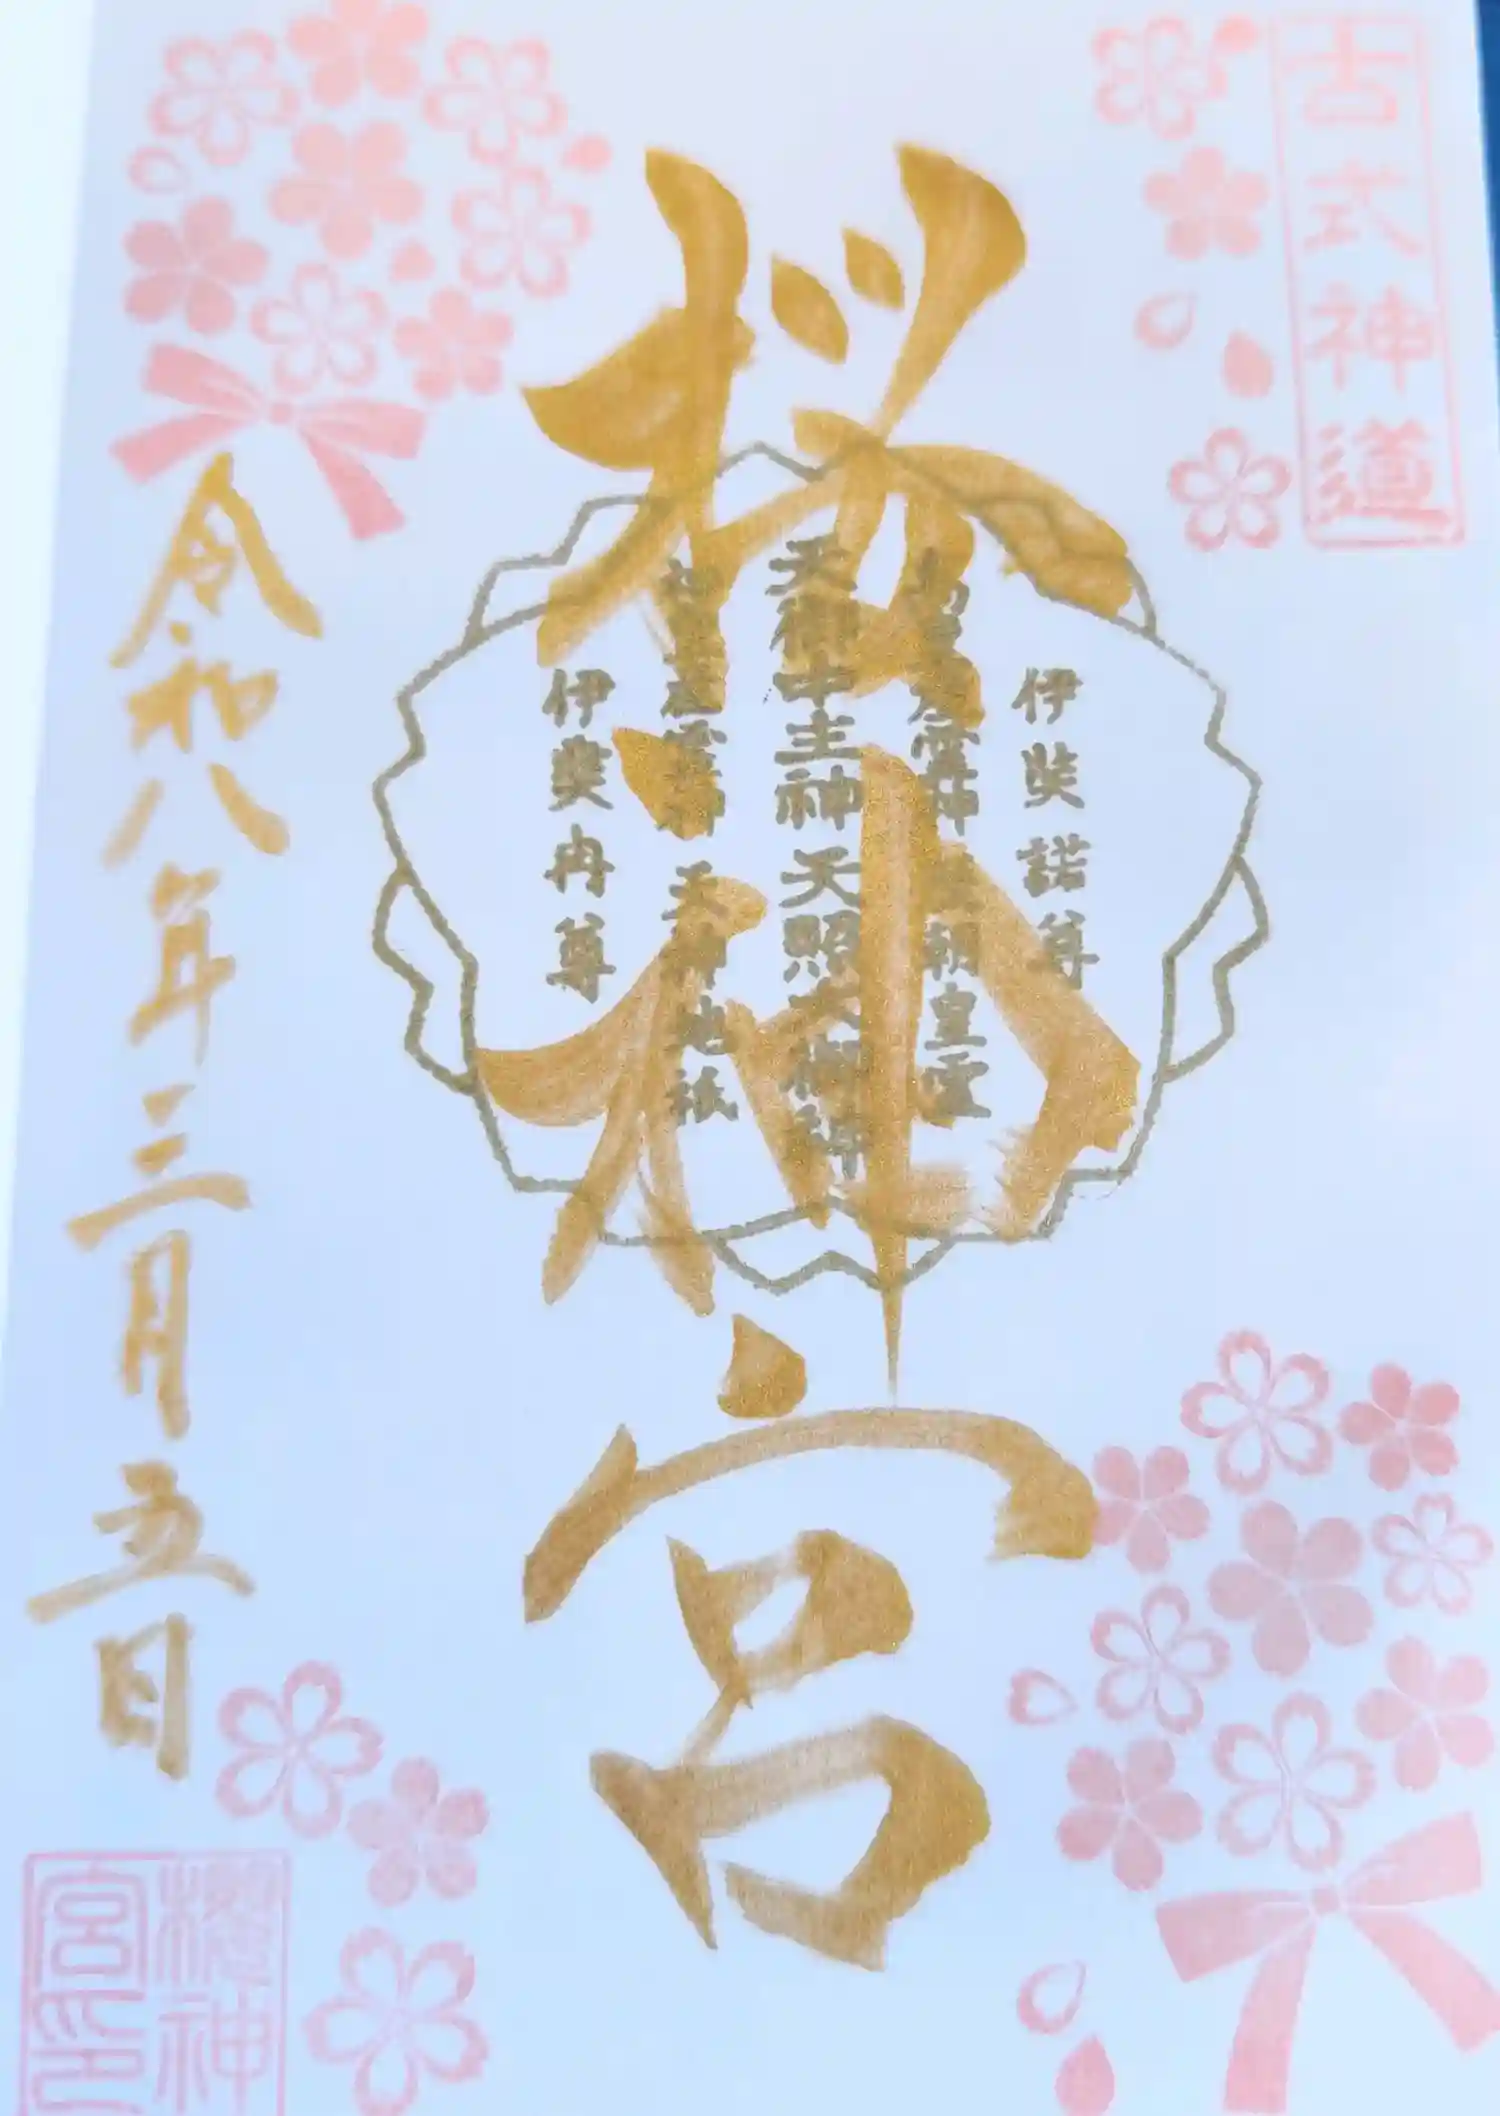 古式神道
桜神宮
伊奘諾尊
天御中主神 天照大御神
天神地祇
伊奘冉尊
令和八年三月五日
櫻神
宮印